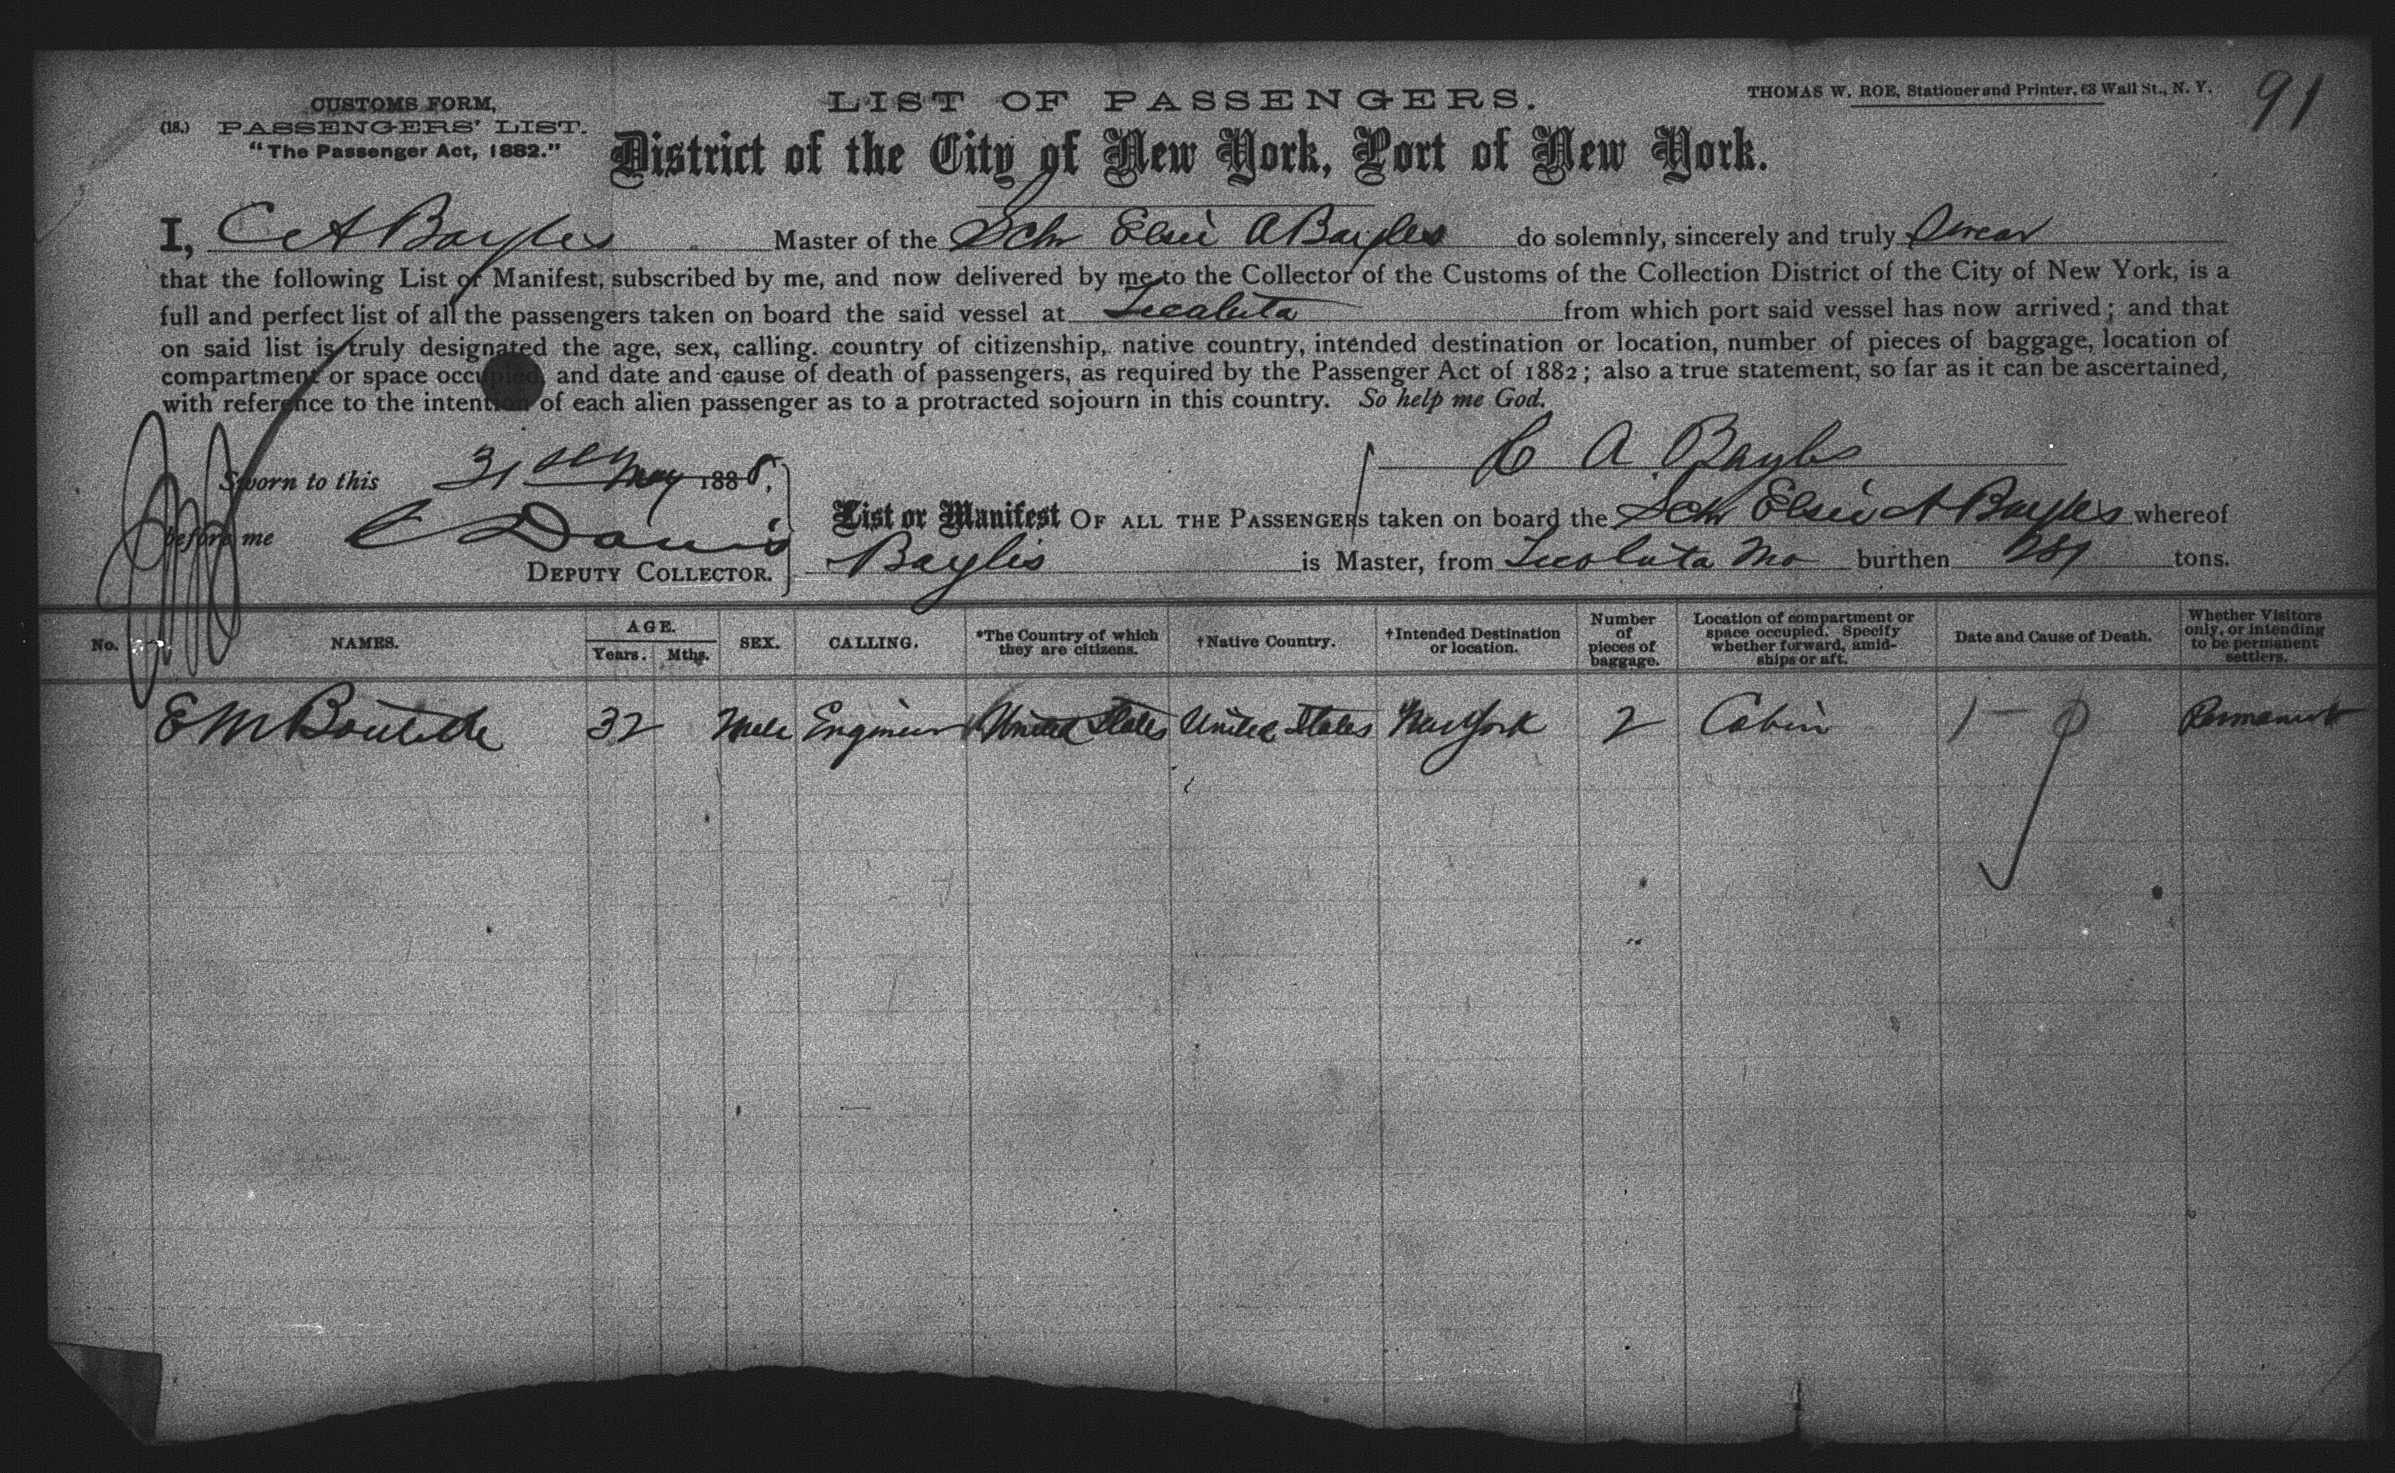 91
CUSTOMS FORM,
(18.) PASSENGERS' LIST.
"The Passenger Act, 1882."
LIST OF PASSENGERS.
THOMAS W. ROE, Stationer and Printer, 63 Wall St., N. Y.
District of the City of New York, Port of New York.
I, C A Bayles Master of the Schr Elsie A Bayles do solemnly, sincerely and truly Swear
that the following List or Manifest, subscribed by me, and now delivered by me to the Collector of the Customs of the Collection District of the City of New York, is a
full and perfect list of all the passengers taken on board the said vessel at Tecoluta from which port said vessel has now arrived; and that
on said list is truly designated the age, sex, calling. country of citizenship, native country, intended destination or location, number of pieces of baggage, location of
compartment or space occupied, and date and cause of death of passengers, as required by the Passenger Act of 1882; also a true statement, so far as it can be ascertained,
with reference to the intention of each alien passenger as to a protracted sojourn in this country. So help me God.
Sworn to this 31 May 1888,
C A Bayles
before me C Davis
DEPUTY COLLECTOR.
List or Manifest OF ALL THE PASSENGERS taken on board the Schr Elsie A Bayles whereof
Baylis is Master, from Tecoluta Mo burthen 281 tons.
No. NAMES. AGE. Years. Mths. SEX. CALLING. *The Country of which they are citizens. †Native Country. †Intended Destination or location. Number of pieces of baggage. Location of compartment or space occupied. Specify whether forward, amidships or aft. Date and Cause of Death. Whether Visitors only, or intending to be permanent settlers.
E M 32 Male Engineer United States United States New York 2 Cabin 1 - Permanent